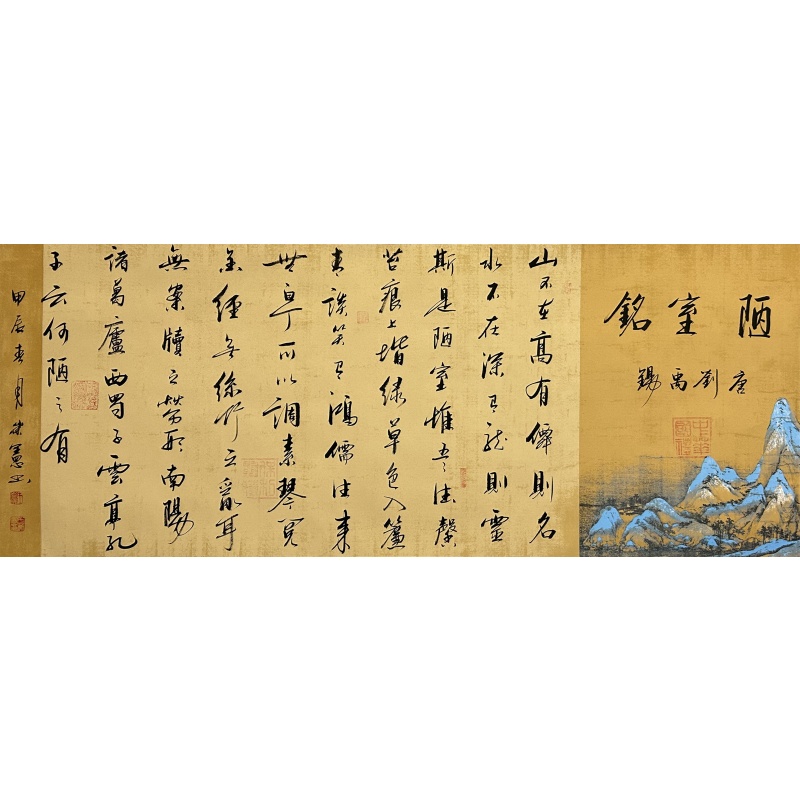 陋室銘
唐刘禹錫
山不在高有僊則名
水不在深有龍則靈
斯是陋室惟吾德馨
苔痕上堦緑草色入簾
青談笑有鴻儒往來
無白丁可以調素琴閱
金經無絲竹之亂耳
無案牘之勞形南陽
諸葛廬西蜀子雲亭孔
子云何陋之有
甲辰春月